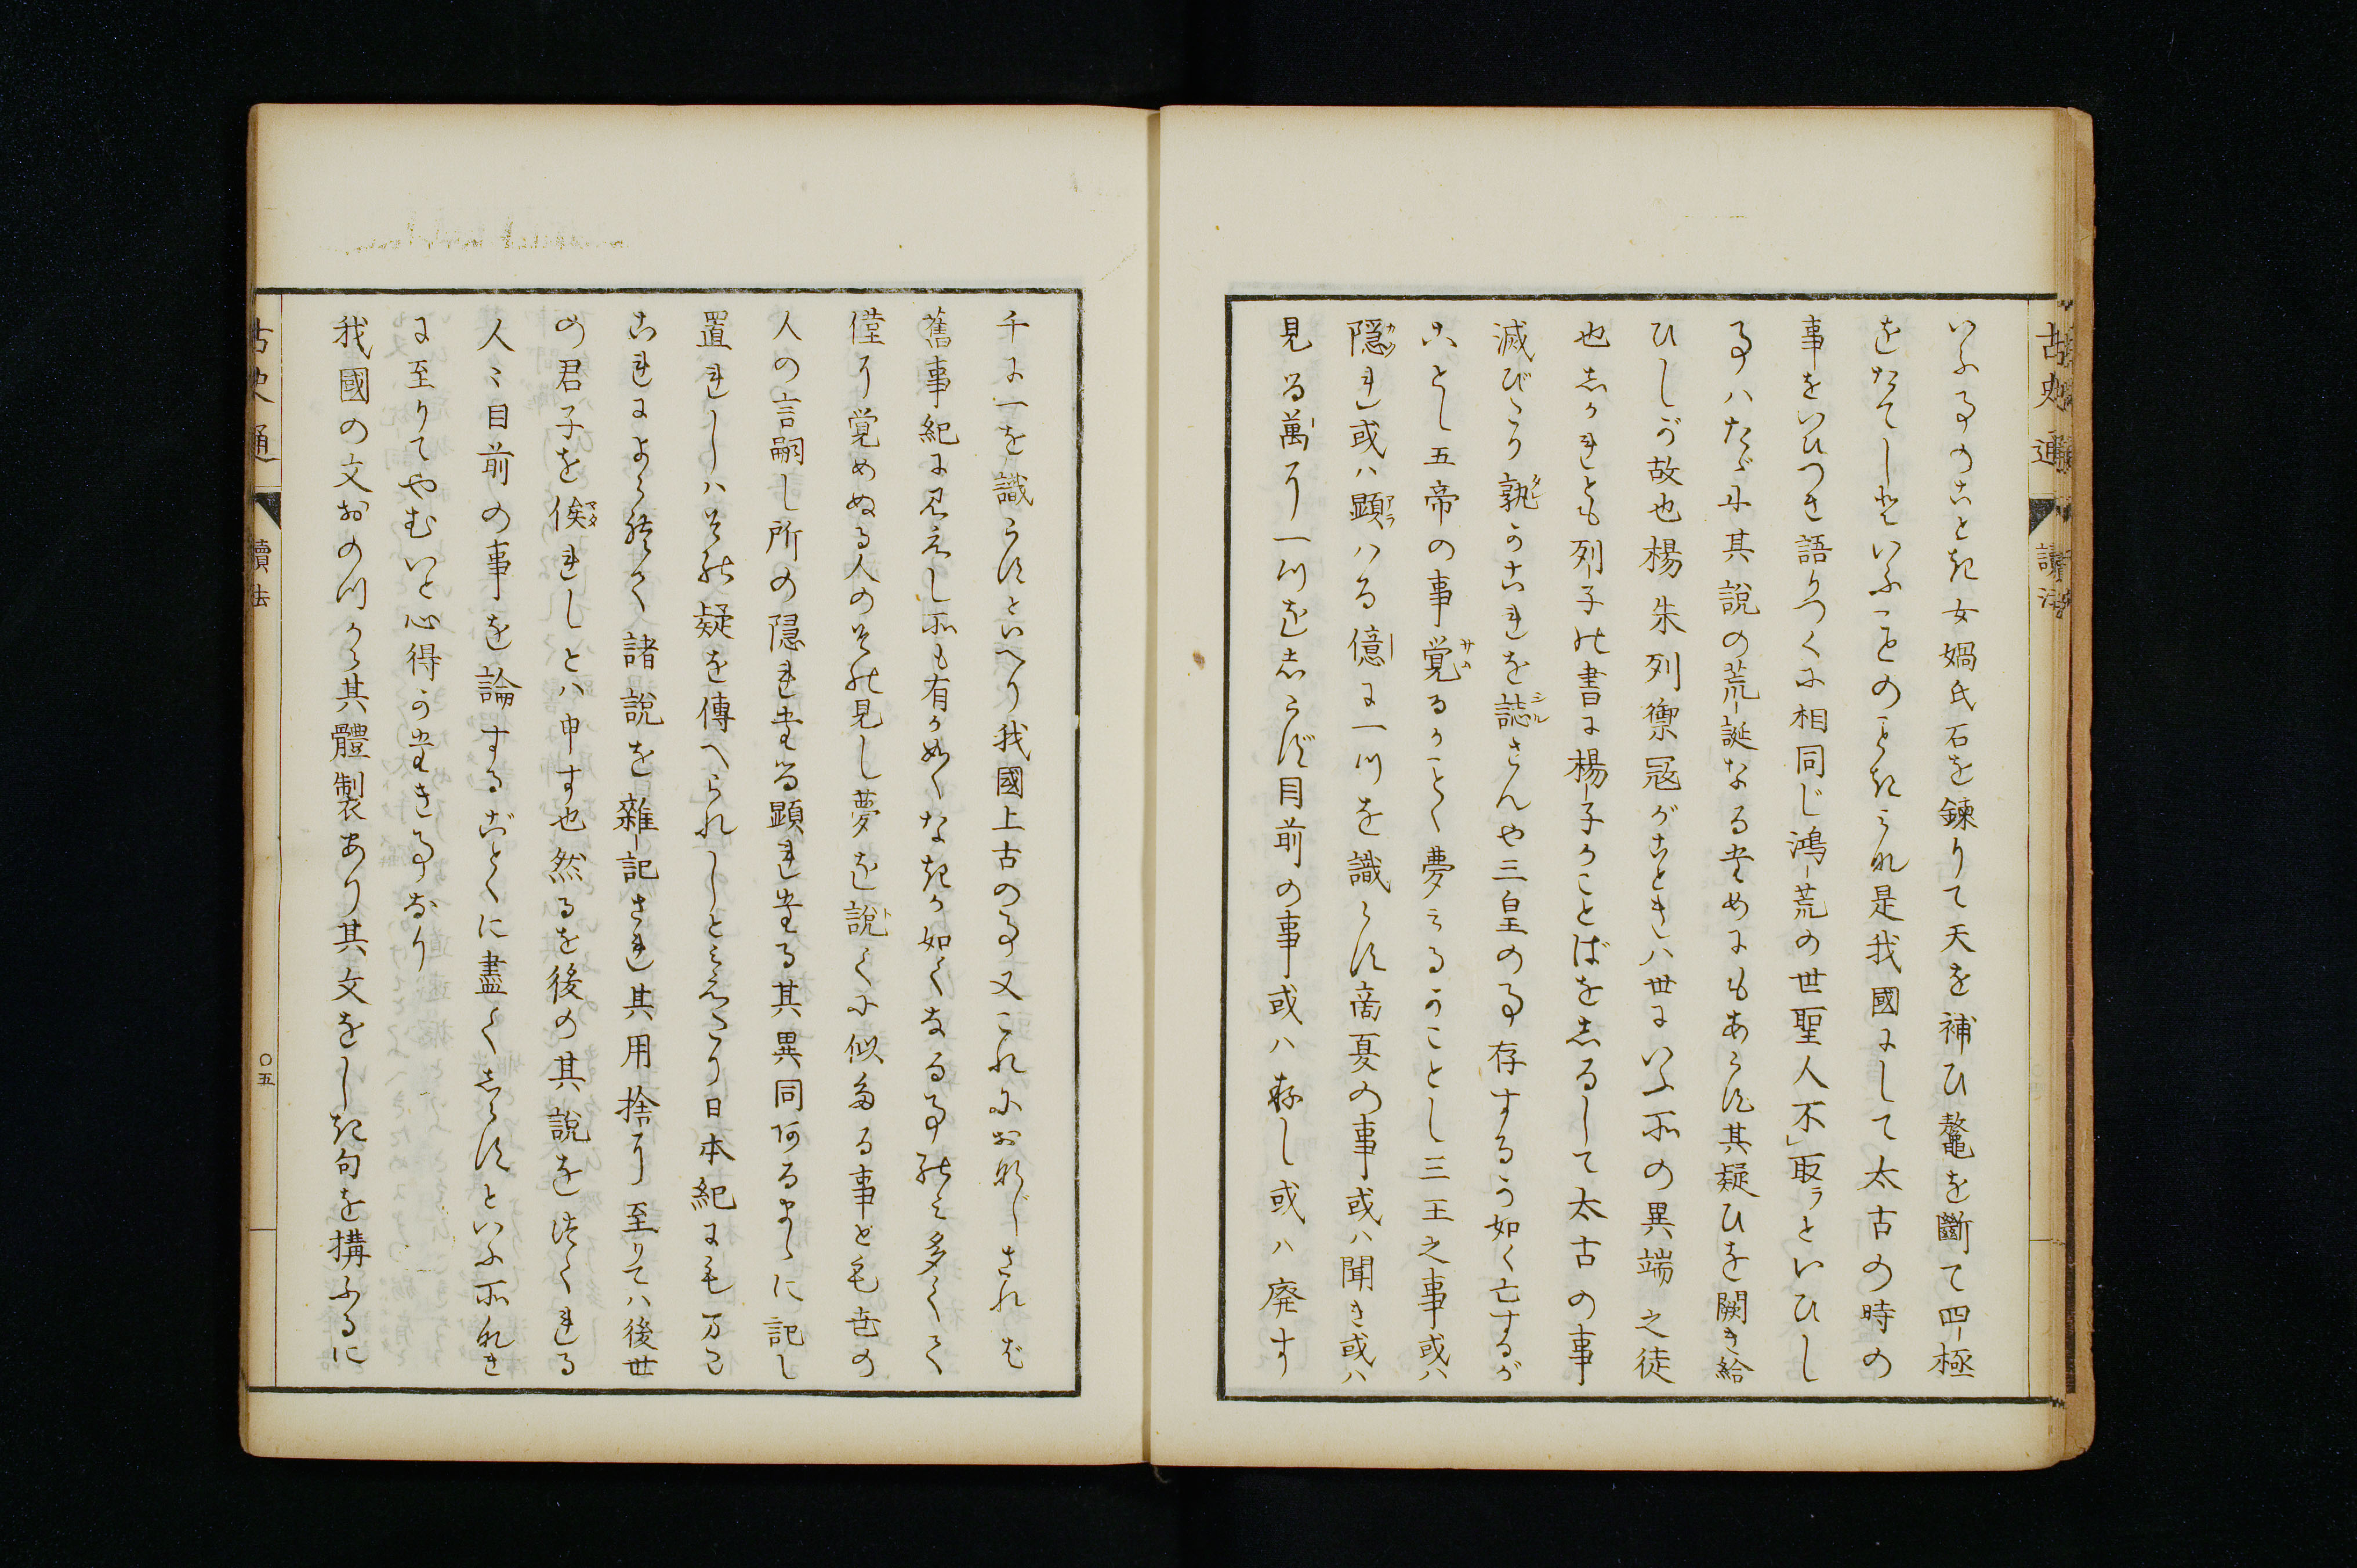 古史通
讀法
いふ事のごとき女媧氏石を鍊りて天を補ひ鼇を斷て四極
をたてしといふことのごときこれ是我國にして太古の時の
事をいひつき語りつくに相同じ鴻荒の世聖人不取ラといひし
事ハたゞに其說の荒誕なるためにもあらす其疑ひを闕き給
ひしが故也楊朱列禦冦がごときハ世にいふ所の異端之徒
也しかれとも列子の書に楊子かことばをしるして太古の事
滅びたり孰かこれを誌さんや三皇の事存するか如く亡するが
ことし五帝の事覚るかことく夢みるかことし三王之事或ハ
隠れ或ハ顕ハる億に一つを識らす当夏の事或ハ聞き或ハ
見る萬に一つをしらず目前の事或ハ存し或ハ廃す
千に一を識らすといへり我國上古の事又これにおなじされば
舊事紀に見えし所も有か如くなきか如くなる事のみ多くして
僅に覚めぬる人の其見し夢を說くに似たる事とも世の
人の言嗣し所の隠れたる顕れたる其異同あるまゝに記し
置れしハ其疑を傳へられしと見えたり日本紀に至てハ
これによらせて諸說を雜記され其用捨に至りてハ後世
の君子を俟れしとハ申す也然るを後の其說をつくれる
人〻目前の事を論するごとくに盡くしらすといふ所なき
に至りてやむいと心得かたき事なり
我國の文おのつから其體製あり其文をしき句を搆ふるに
古史通
讀法
〇五